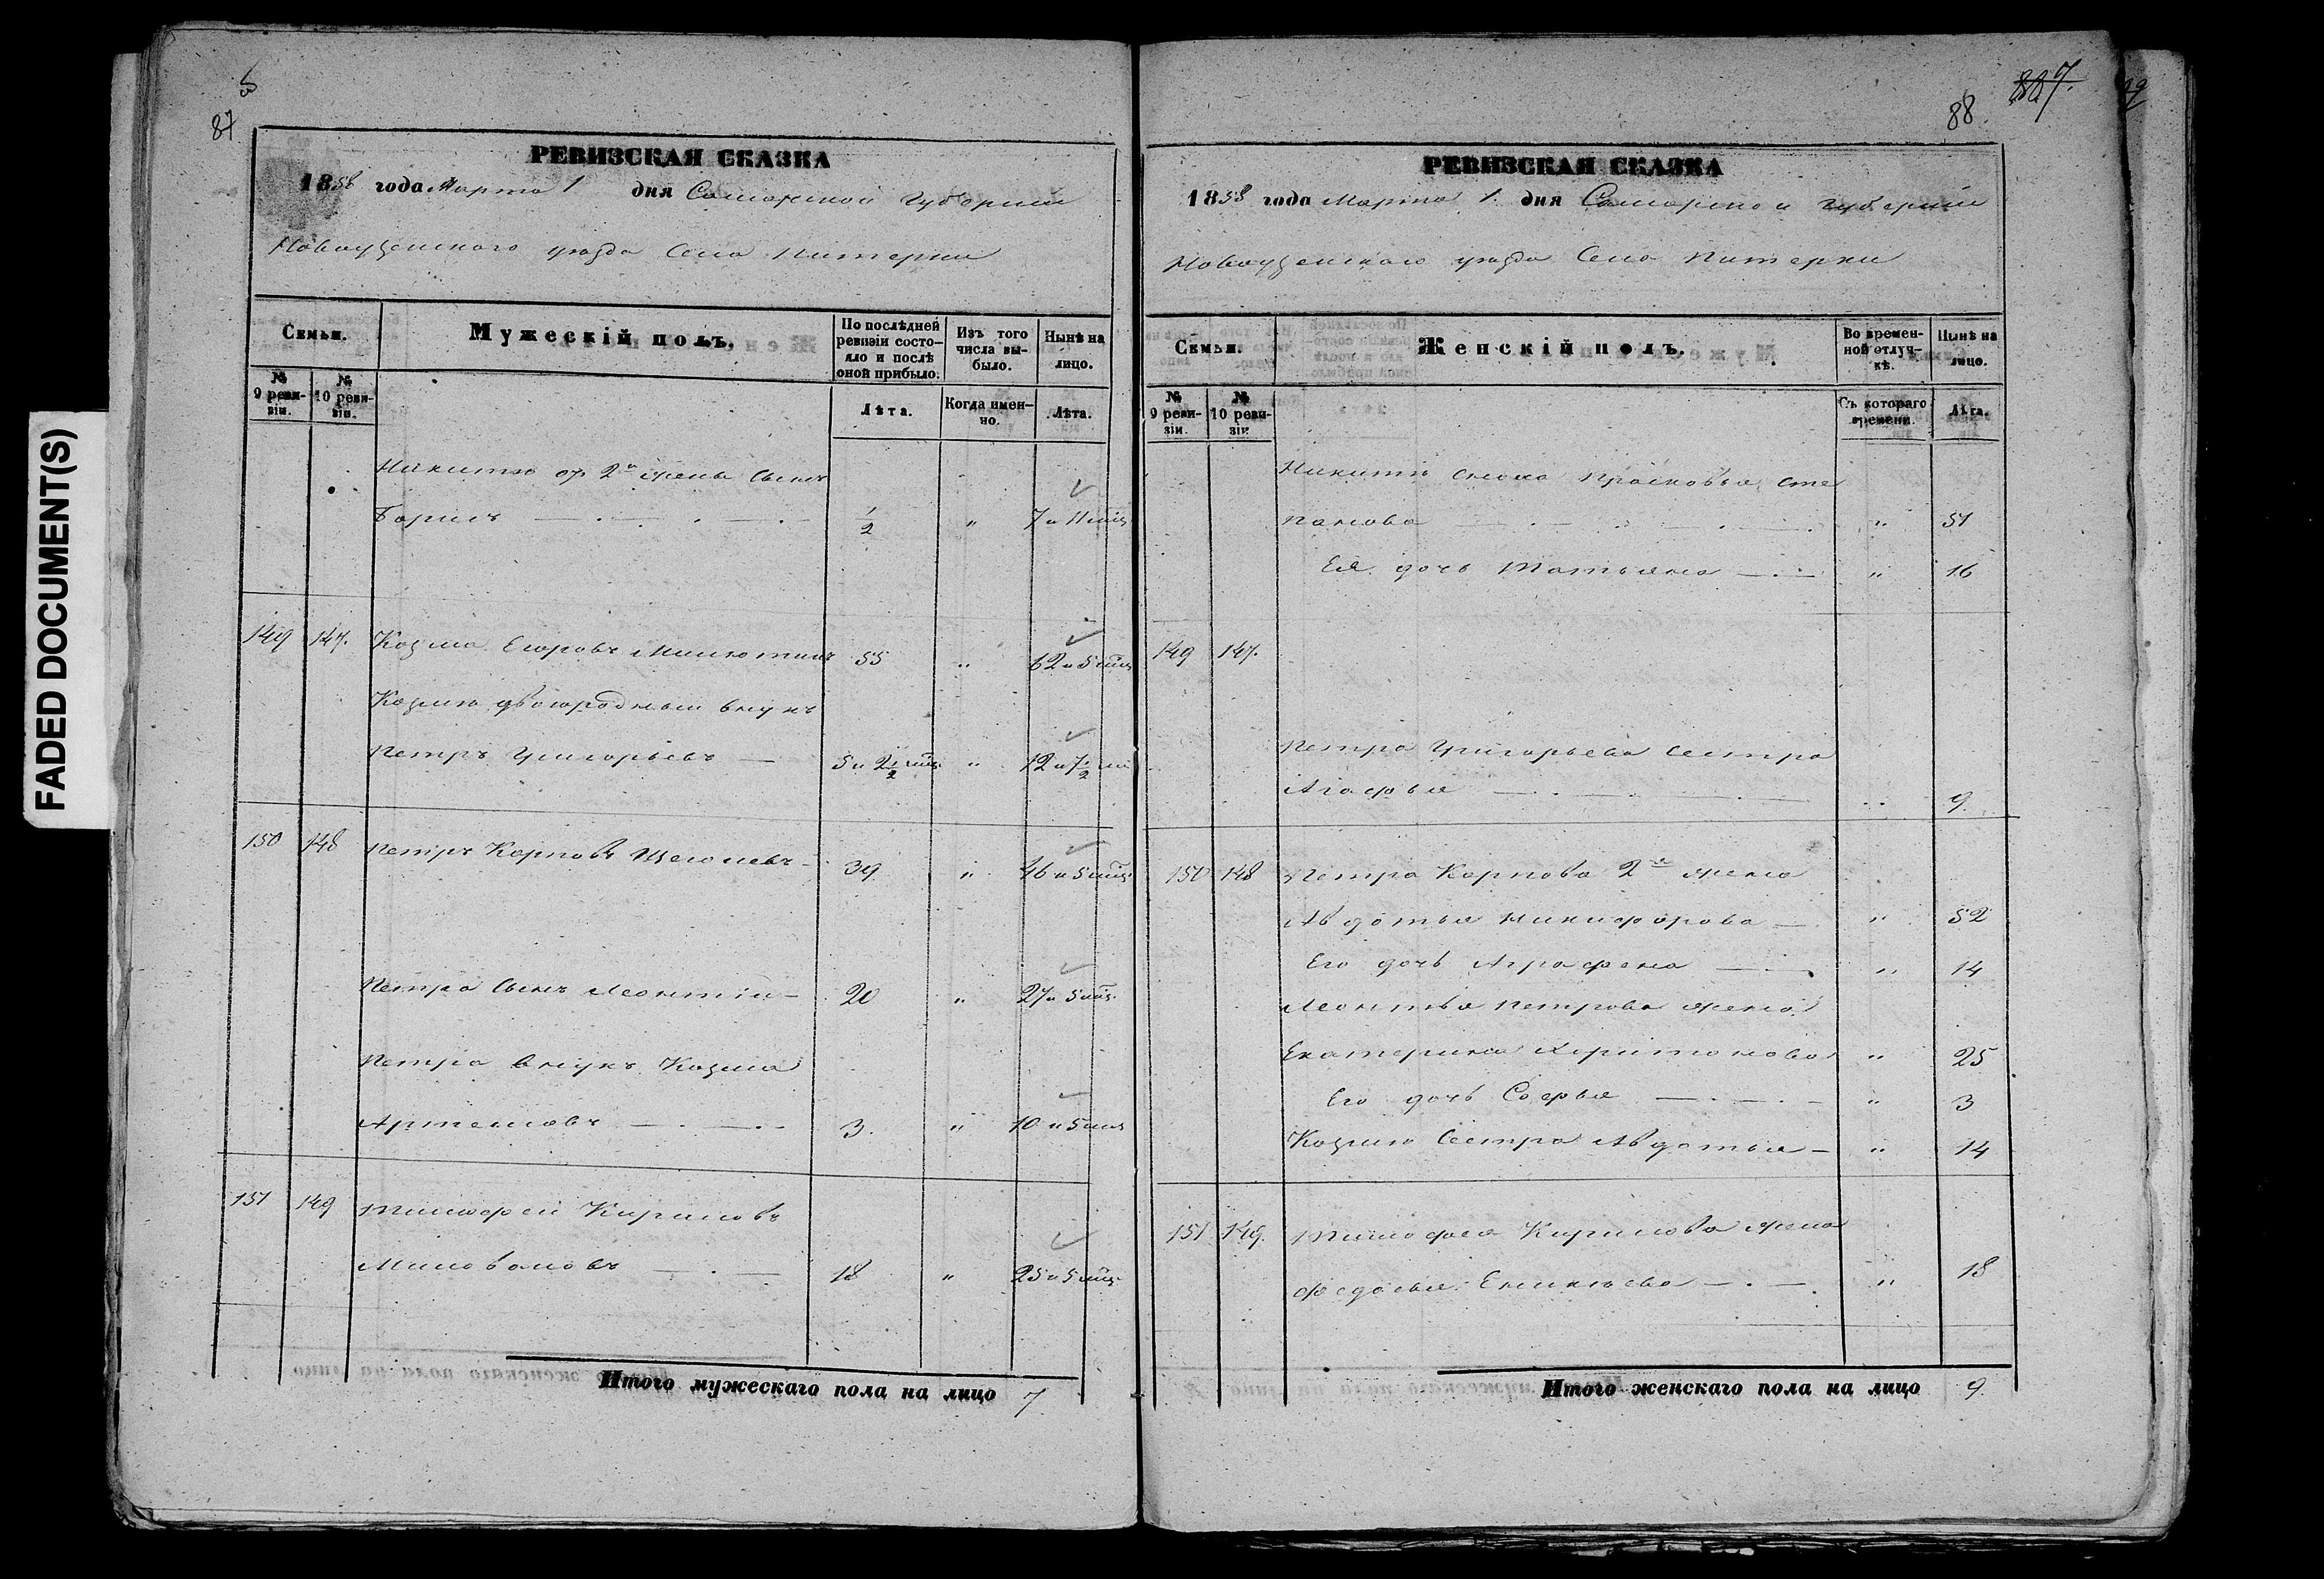 FADED DOCUMENT(S)
87
РЕВИЗСКАЯ СКАЗКА
1858 года Марта 1 дня Самарской Губернии
Новоузенского уезда Села Питерки
Семьи.
Мужескій полъ.
По послѣдней ревизіи состояло и послѣ оной прибыло.
Изъ того числа выбыло.
Нынѣ на лицо.
№ 9 ревизіи.
№ 10 ревизіи.
Лѣта.
Когда именно.
Лѣта.
Никиты от 2й жены Сынъ
Борисъ 1/2 " 7 и 11 мѣц
149 147. Козма Егоровъ 55 " 62 и 5 мѣц
Козмы двоюродный внукъ
Петръ Григорьевъ 5 и 2 1/2 мѣц " 12 и 7 1/2 мѣ
150 148 Петръ Карповъ Щеголевъ 39 " 46 и 5 мѣц
Петра Сынъ Леонтій 20 " 27 и 5 мѣц
Петра внукъ Козма
Артемовъ 3. " 10 и 5 мѣц
151 149 Тимофей Кириловъ
Миловановъ 18 " 25 и 5 мѣц
Итого мужескаго пола на лицо 7
88.
РЕВИЗСКАЯ СКАЗКА
1858 года Марта 1. дня Самарской Губерніи
Новоузенского уезда Села Питерки
Семьи.
Женскій полъ.
Во временной отлучкѣ.
Нынѣ на лицо.
№ 9 ревизіи.
№ 10 ревизіи
Съ котораго времени.
Лѣта.
Никиты сноха Прасковья Сте
панова " 51
Ея дочь Татьяна " 16
149 147.
Петра Григорьева Сестра
Агафья " 9
150 148 Петра Карпова 2я жена
Авдотья Никифорова " 52
Его дочь Аграфена " 14
Леонтья Петрова жена
Екатерина Харитонова " 25
Его дочь Софья " 3
Козмы Сестра Авдотья " 14
151 149. Тимофея Кирилова жена
Федосья " 18
Итого женскаго пола на лицо 9